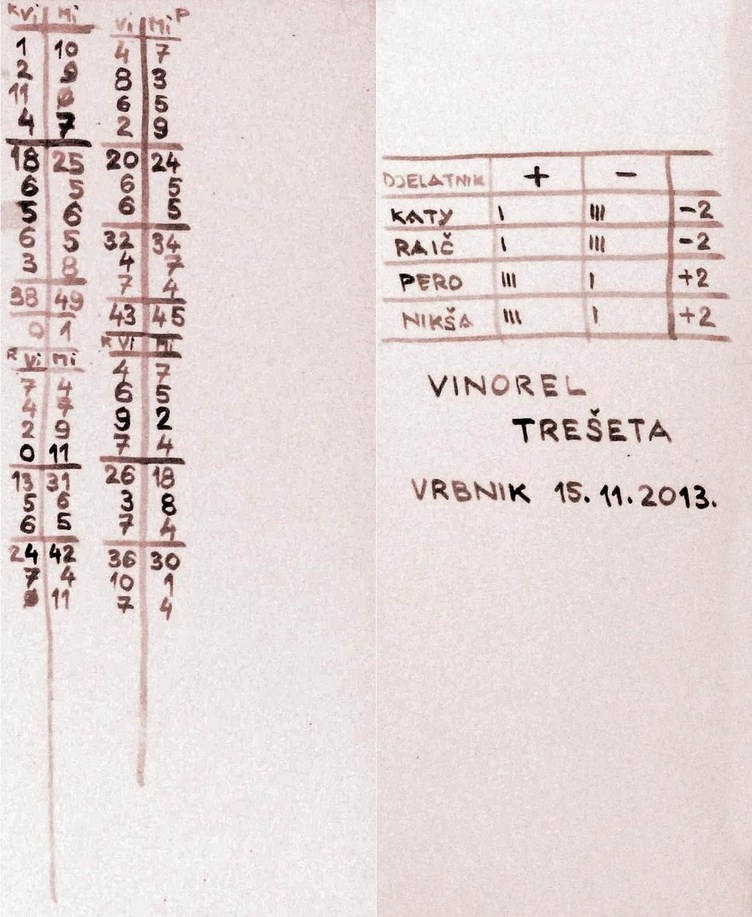 K Vi Mi
1 10
2 9
11 ø
4 7
18 25
6 5
5 6
6 5
3 8
38 49
0 1
R Vi Mi
7 4
4 7
2 9
0 11
13 31
5 6
6 5
24 42
7 4
ø 11
Vi Mi P
4 7
8 3
6 5
2 9
20 24
6 5
6 5
32 34
4 7
7 4
43 45
K Vi Mi
4 7
6 5
9 2
7 4
26 18
3 8
7 4
36 30
10 1
7 4
DJELATNIK + -
KATY I III -2
RAIČ I III -2
PERO III I +2
NIKŠA III I +2
VINOREL
TREŠETA
VRBNIK 15.11.2013.